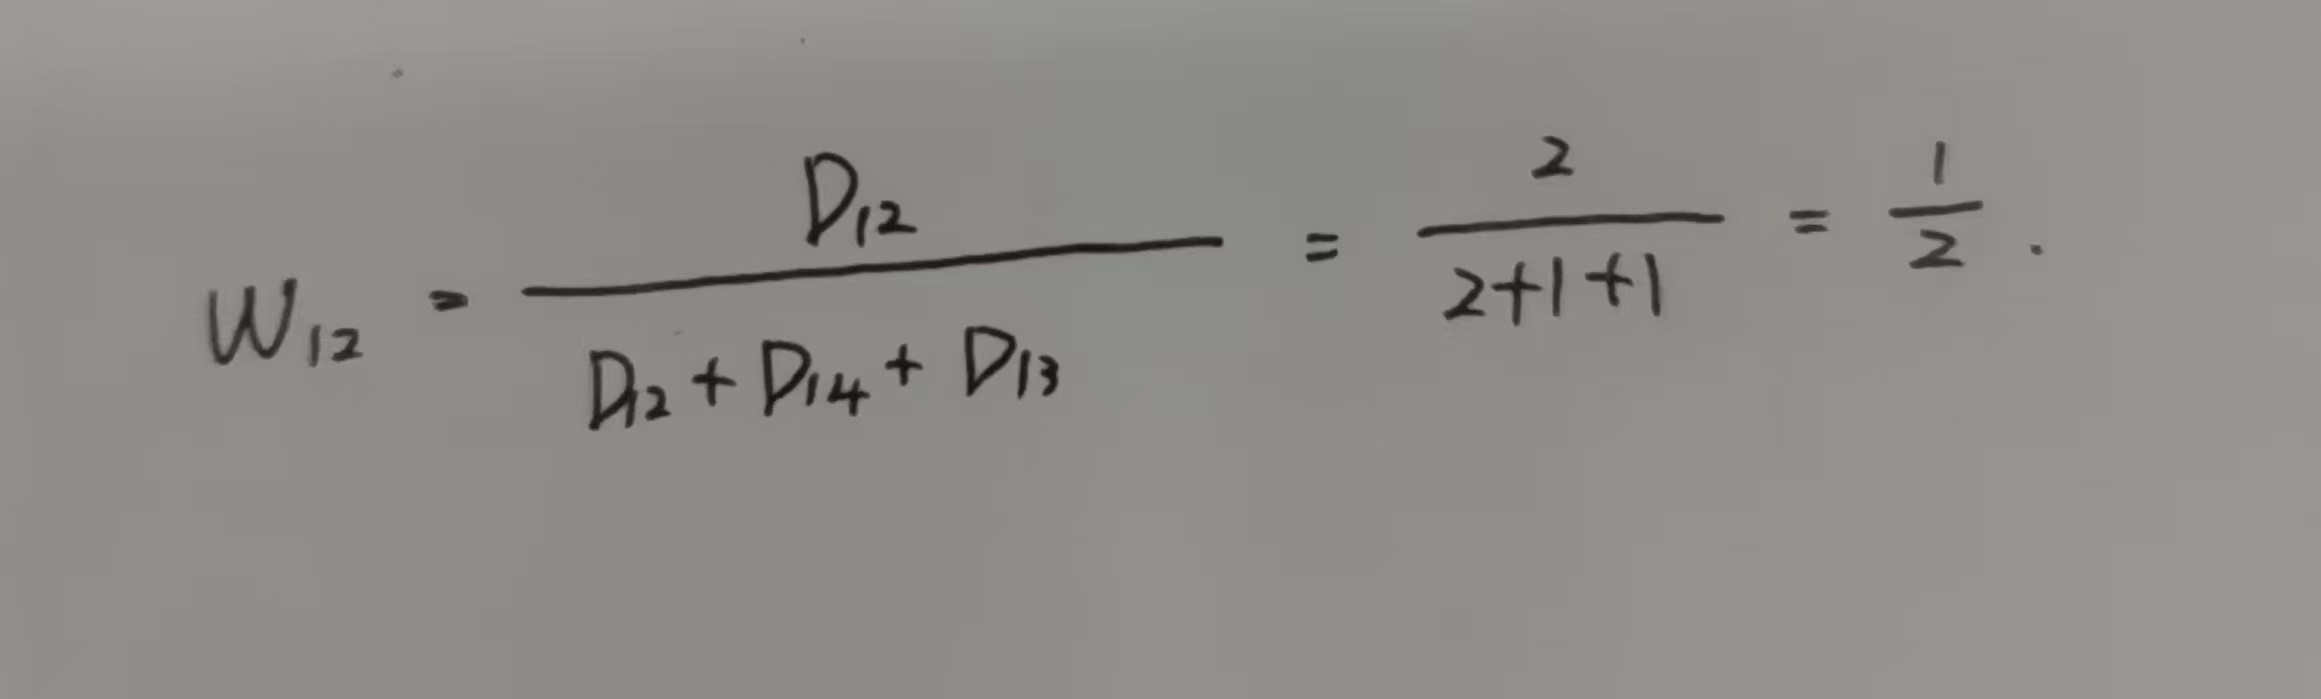 W₁₂ = D₁₂ / (D₁₂ + D₁₄ + D₁₃) = 2 / (2+1+1) = 1/2 .